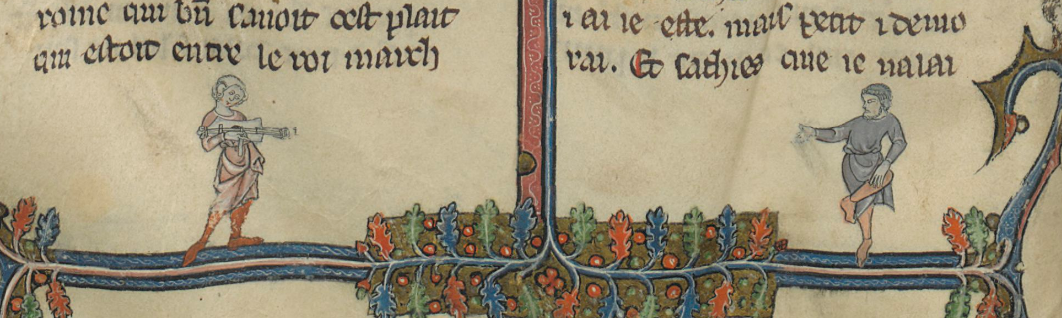 roine qui bn̄ sauoit cest plait
qui estoit entre le roi march
i ai ie este. mais petit i demo
rai. Et sachies que ie nalai